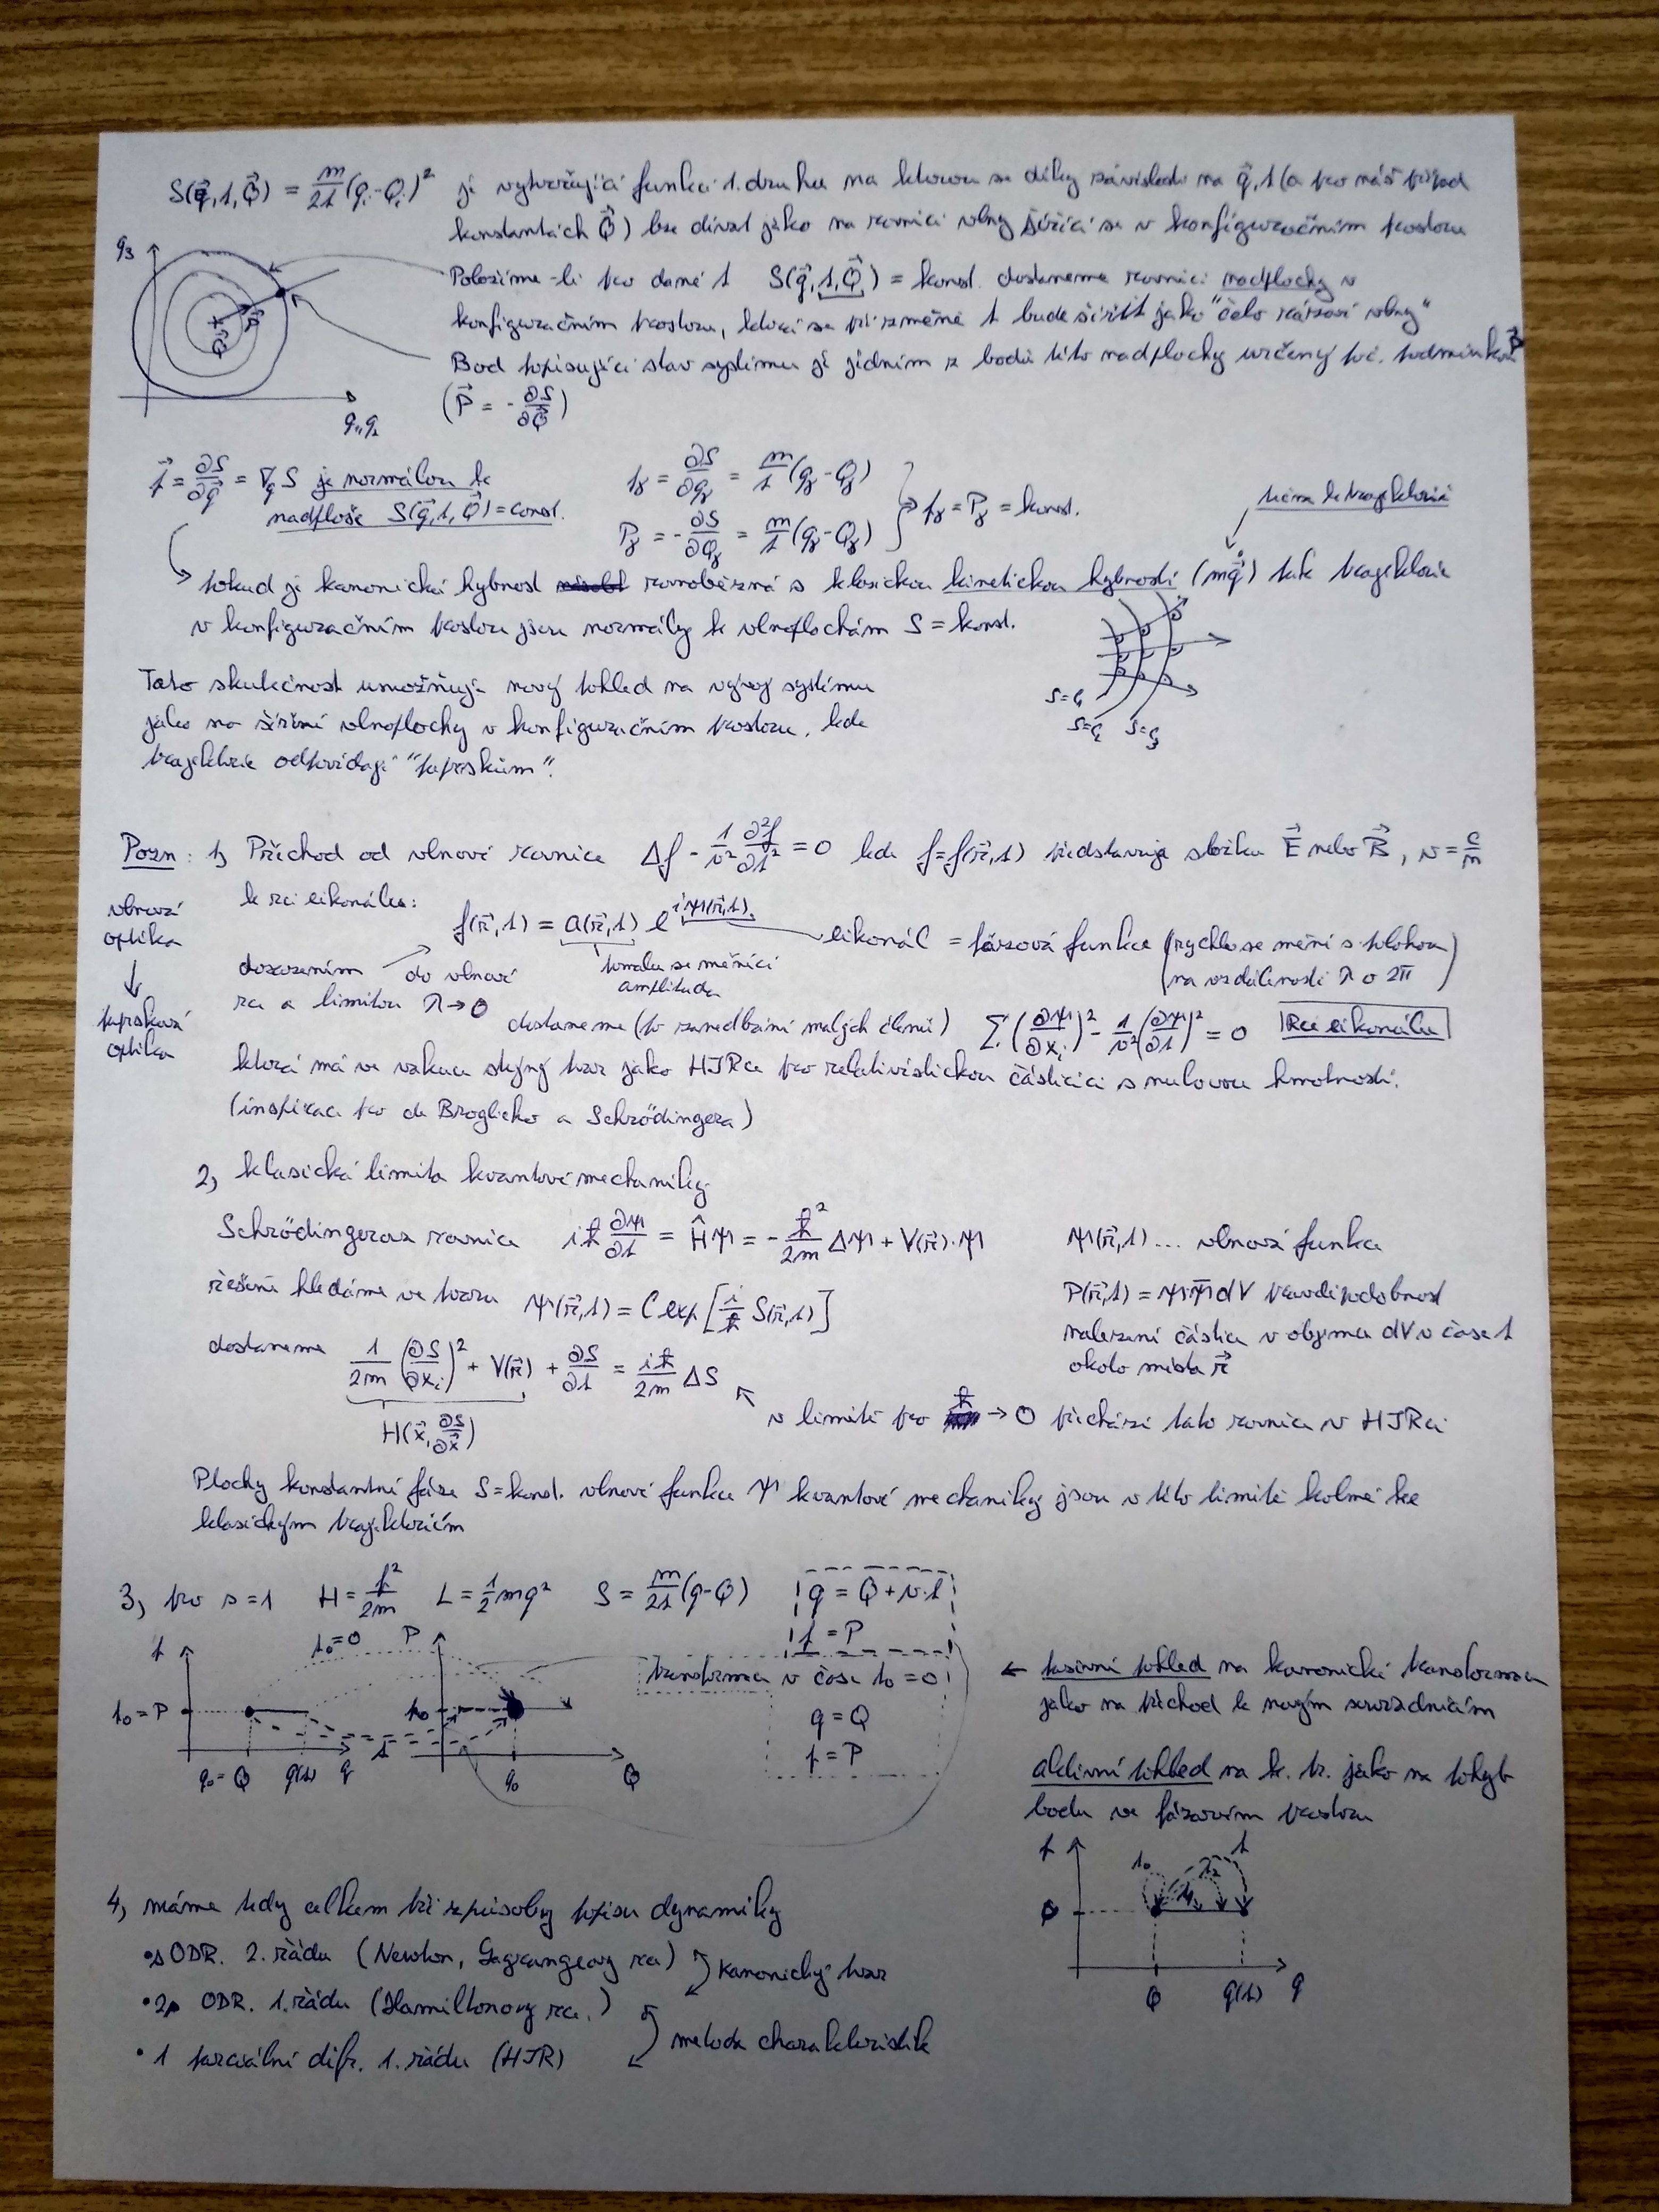 S(q⃗,t,Q⃗) = m/2t (qᵢ-Qᵢ)² je vytvořující funkcí 1. druhu na kterou se díky závislosti na q⃗,t (a pro náš případ
konstantách Q⃗) lze dívat jako na rovnici vlny šířící se v konfiguračním prostoru
q₃
P⃗
Q⃗
q₁,q₂
Položíme-li pro dané t S(q⃗,t,Q⃗) = konst. dostaneme rovnici nadplochy v
konfiguračním prostoru, která se při změně t bude šířit jako "čelo rázové vlny"
Bod popisující stav systému je jedním z bodů této nadplochy určený poč. podmínkou P⃗
(P⃗ = - ∂S/∂Q⃗)
p⃗ = ∂S/∂q⃗ = ∇q S je normálou k
nadploše S(q⃗,t,Q⃗) = const.
pⱼ = ∂S/∂qⱼ = m/t (qⱼ-Qⱼ)
Pⱼ = -∂S/∂Qⱼ = m/t (qⱼ-Qⱼ)
⇒ pⱼ = Pⱼ = konst.
tečna k trajektorii
pokud je kanonická hybnost rovnoběžná s klasickou kinetickou hybností (mq̇⃗) pak trajektorie
v konfiguračním prostoru jsou normály k vlnoplochám S = konst.
Tato skutečnost umožňuje nový pohled na vývoj systému
jako na šíření vlnoplochy v konfiguračním prostoru, kde
trajektorie odpovídají "paprskům".
S=C₁
S=C₂ S=C₃
Pozn: 1, Přechod od vlnové rovnice Δf - 1/v² ∂²f/∂t² = 0 kde f=f(r⃗,t) představuje složku E⃗ nebo B⃗, v = c/n
k rci eikonálu:
vlnová
optika
↓
paprsková
optika
f(r⃗,t) = a(r⃗,t) e^{iψ(r⃗,t)}
eikonál = fázová funkce (rychle se mění s polohou
na vzdálenosti λ o 2π)
pomalu se měnící
amplituda
dosazením do vlnové
rce a limitou λ→0
dostaneme (po zanedbání malých členů) Σ(∂ψ/∂xᵢ)² - 1/v² (∂ψ/∂t)² = 0 Rce eikonálu
která má ve vakuu stejný tvar jako HJRce pro relativistickou částicici s nulovou hmotností.
(inspirace pro de Broglieho a Schrödingera)
2, klasická limita kvantové mechaniky
Schrödingerova rovnice iℏ ∂ψ/∂t = Ĥψ = - ℏ²/2m Δψ + V(r⃗)·ψ
ψ(r⃗,t) ... vlnová funkce
řešení hledáme ve tvaru ψ(r⃗,t) = C exp[i/ℏ S(r⃗,t)]
P(r⃗,t) = ψψ̄ dV pravděpodobnost
nalezení částice v objemu dV v čase t
okolo místa r⃗
dostaneme 1/2m (∂S/∂xᵢ)² + V(r⃗) + ∂S/∂t = iℏ/2m ΔS
H(x⃗, ∂S/∂x⃗)
v limitě pro ℏ → 0 přechází tato rovnice v HJRci
Plochy konstantní fáze S=konst. vlnové funkce ψ kvantové mechaniky jsou v této limitě kolmé ke
klasickým trajektoriím
3, pro s=1 H = p²/2m L = 1/2 mq² S = m/2t (q-Q)
q = Q + v·t
p = P
p
t₀=0
P
p₀ = P
p₀
q₀ = Q q(t) q
t
q₀
Q
transformace v čase t₀ = 0
q = Q
p = P
← pasivní pohled na kanonické transformace
jako na přechod k novým souřadnicím
aktivní pohled na k. tr. jako na pohyb
bodu ve fázovém prostoru
p
t₀
t₁
t₂
t
Q q(t) q
4, máme tedy celkem tři způsoby popisu dynamiky
• s ODR. 2. řádu (Newton, Lagrangeovy rce)
kanonický tvar
• 2s ODR. 1. řádu (Hamiltonovy rce.)
metoda charakteristik
• 1 parciální difr. 1. řádu (HJR)